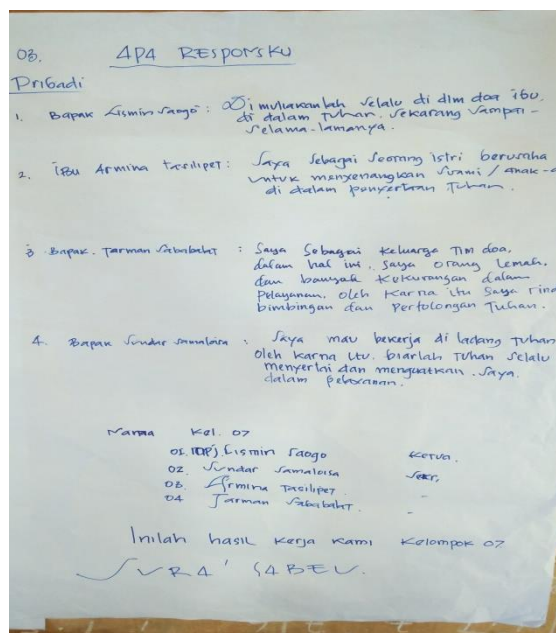 03. APA RESPONSKU
Pribadi
1. Bapak Lismin Saogo : Dimuliakanlah selalu di dlm doa ibu.
di dalam Tuhan. sekarang sampai-
selama-lamanya.
2. Ibu Armina Tasilipet : Saya sebagai seorang istri berusaha
untuk menyenangkan suami / anak-a
di dalam penyertaan Tuhan.
3 Bapak. Tarman Sababaht : Saya sebagai keluarga Tim doa,
dalam hal ini, saya orang lemah,
dan banyak kekurangan dalam
pelayanan, oleh karna itu saya rind
bimbingan dan pertolongan Tuhan.
4. Bapak Sundar Samaloisa : Saya mau bekerja di ladang Tuhan
oleh karna itu. biarlah Tuhan selalu
menyertai dan menguatkan. saya.
dalam pelayanan.
Nama Kel. 07
01. Lismin Saogo Ketua.
02. Sundar Samaloisa Sekr,
03. Armina Tasilipet. -
04 Tarman Sababaht. -
Inilah hasil kerja kami Kelompok 07
SURA' SABEU.